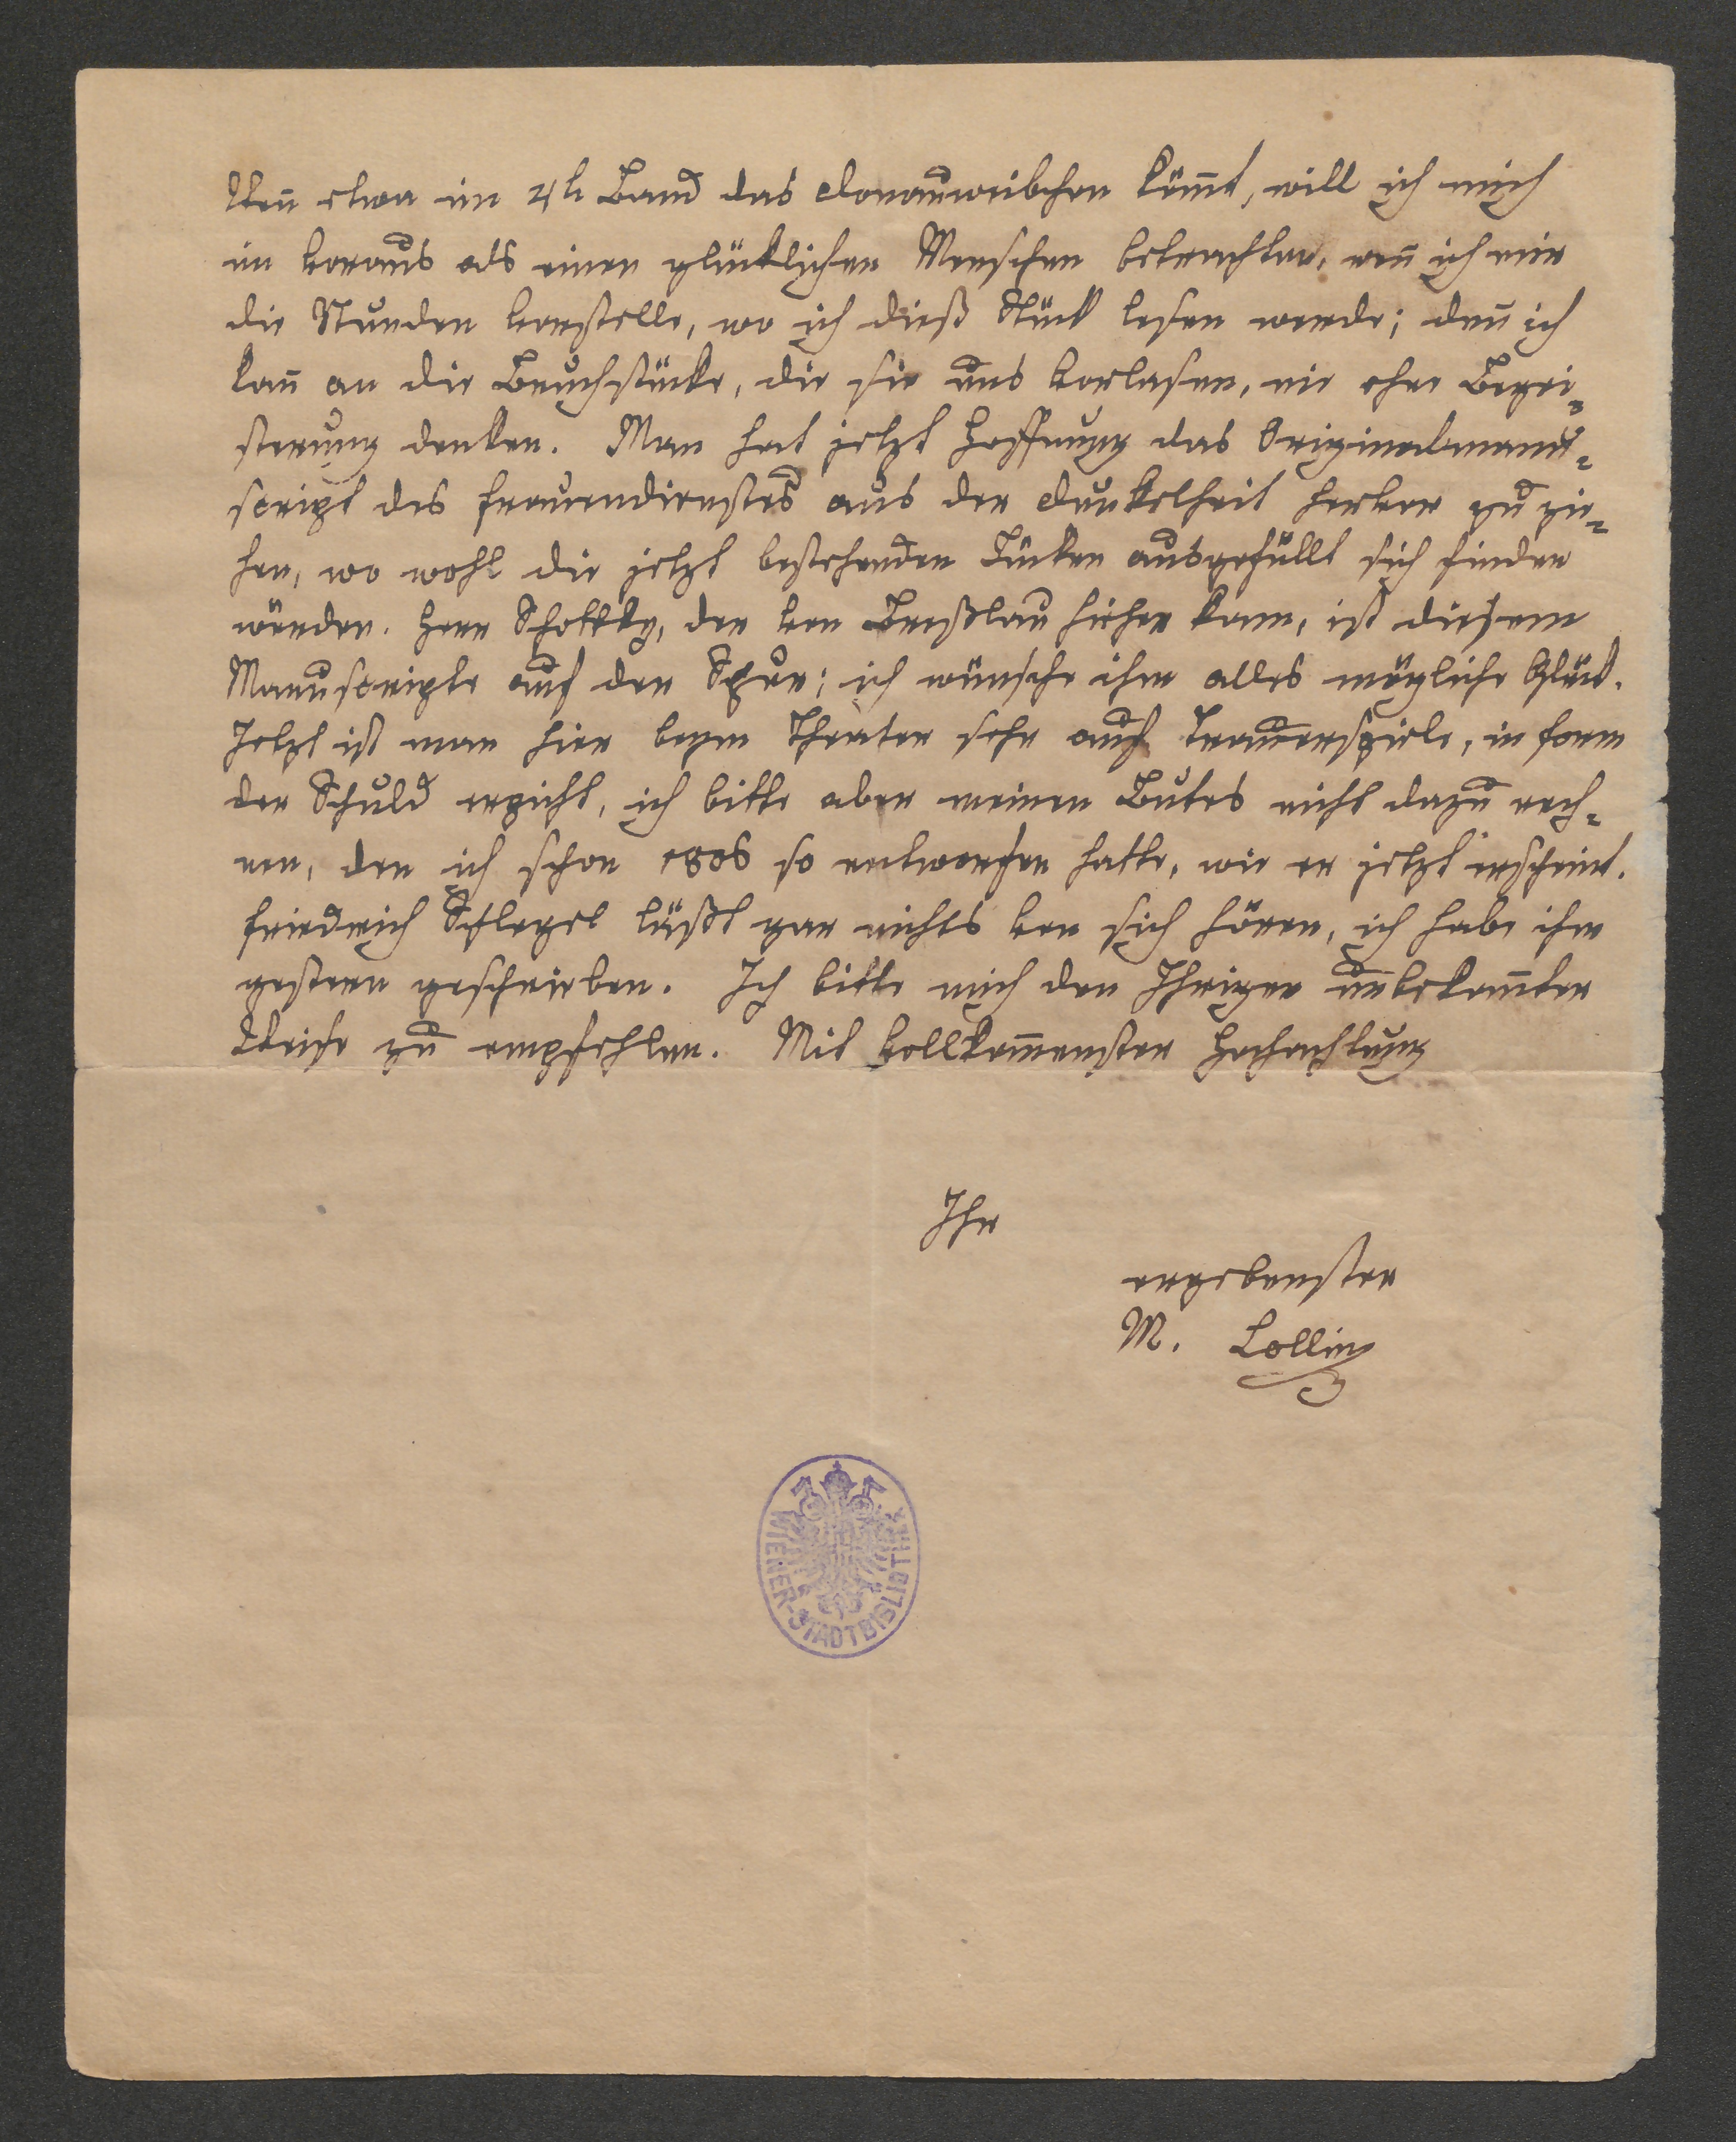 Wen̅ etwa im 4t Band das Donauweibchen köm̅t, will ich mich
im voraus als einen glücklichen Menschen betrachten, wen̅ ich mir
die Stunden vorstelle, wo ich dieß Stück lesen werde; den̅ ich
kan̅ an die Bruchstücke, die sie uns vorlasen, nie ohne Begei-
sterung denken. Man hat jetzt Hoffnung das Originalmanu-
script des Frauendienstes aus der Dunkelheit hervor zu zie-
hen, wo wohl die jetzt bestehenden Lücken ausgefüllt sich finden
würden. Herr Schottky, der von Breßlau hieher kam, ist diesem
Manuscripte auf der Spur; ich wünsche ihm alles mögliche Glück.
Jetzt ist man hier beym Theater sehr auf Trauerspiele, in Form
der Schuld erpicht, ich bitte aber meinen Butes nicht dazu rech-
nen, den ich schon 1806 so entworfen hatte, wie er jetzt erscheint.
Friedrich Schlegel läßt gar nichts von sich hören, ich habe ihm
gestern geschrieben. Ich bitte mich den Ihrigen unbekan̅ter
Weise zu empfehlen. Mit vollkom̅enster Hochachtung
Ihr
ergebenster
M. Collin
WIENER-STADTBIBLIOTHEK